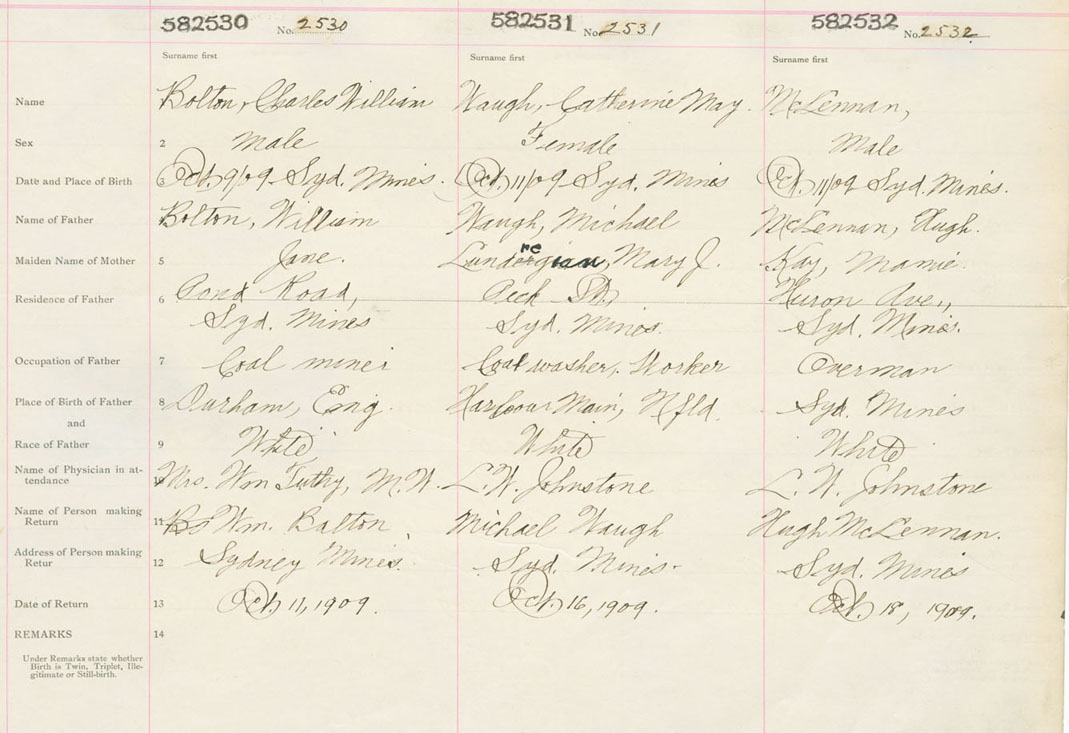 582530 No. 2530 582531 No. 2531 582532 No. 2532
Surname first Surname first Surname first
Name Bolton, Charles William Waugh, Catherine May. McLennan,
Sex 2 Male Female Male
Date and Place of Birth 3 Oct. 9/09 Syd. Mines. Oct. 11/09 Syd. Mines Oct. 11/09 Syd. Mines.
Name of Father 4 Bolton, William Waugh, Michael McLennan, Hugh.
Maiden Name of Mother 5 Jane. Mary J. Kay, Mamie.
Residence of Father 6 Pond Road, Peck St., Huron Ave.,
Syd. Mines Syd. Mines. Syd. Mines.
Occupation of Father 7 Coal miner Coal washer, Worker Overman
Place of Birth of Father 8 Durham, Eng. Harbour Main, Nfld. Syd. Mines
and
Race of Father 9 White White White
Name of Physician in at- 10 Mrs. Wm Tuthy, M.W. L. W. Johnstone L. W. Johnstone
tendance
Name of Person making 11 Wm. Bolton Michael Waugh Hugh McLennan.
Return
Address of Person making 12 Sydney Mines. Syd. Mines. Syd. Mines
Retur
Date of Return 13 Oct. 11, 1909. Oct. 16, 1909. Oct. 18, 1909.
REMARKS 14
Under Remarks state whether
Birth is Twin, Triplet, Ille-
gitimate or Still-birth.